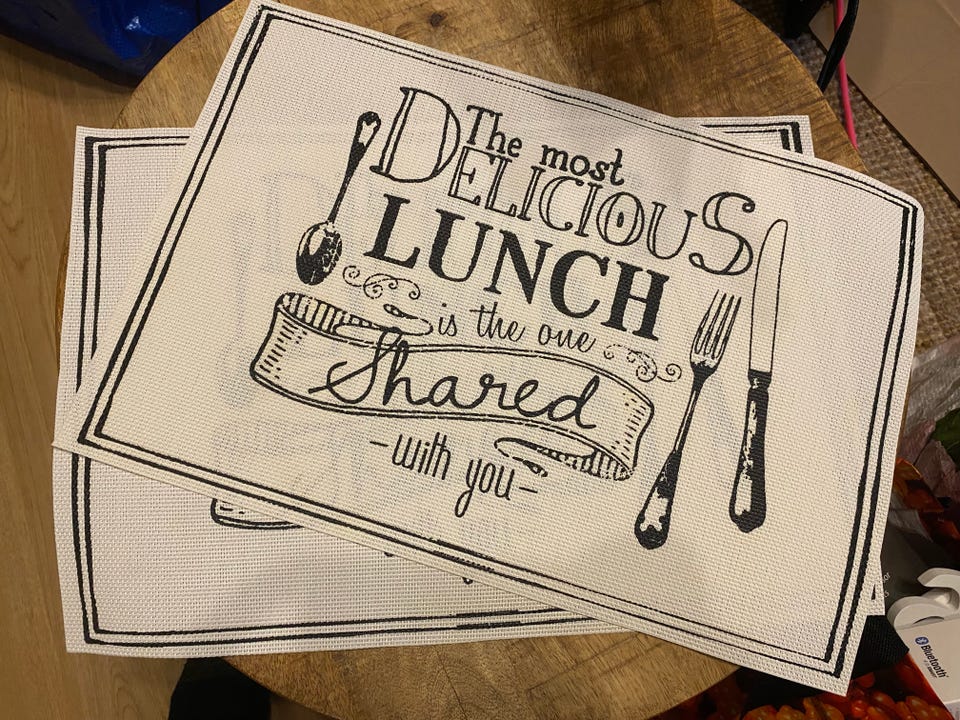 The most
DELICIOUS
LUNCH
is the one
Shared
-with you-
Bluetooth